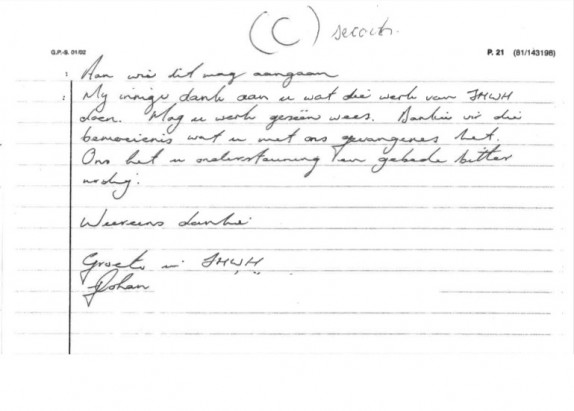 (C)
G.P.-S. 01/02
P. 21 (81/143198)
1 Aan wie dit mag aangaan
2 My innige dank aan u wat die werk van JHWH
doen. Mag u werk geseën wees. Dankie vir die
bemoeienis wat u met ons gevangenes het.
Ons het u ondersteuning en gebede bitter
nodig.
Weereens dankie
Groete in JHWH
Johan